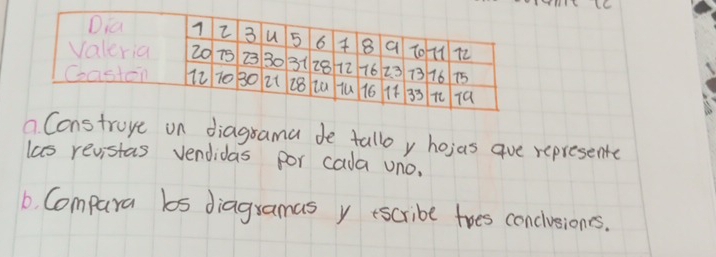 Día 1 2 3 4 5 6 7 8 9 10 11 12
Valeria 20 15 23 30 31 28 12 16 23 13 16 15
Gastón 12 10 30 21 28 20 14 16 17 33 12 19
a. Construye un diagrama de tallo y hojas que represente
las revistas vendidas por cada uno.
b. Compara los diagramas y escribe tres conclusiones.